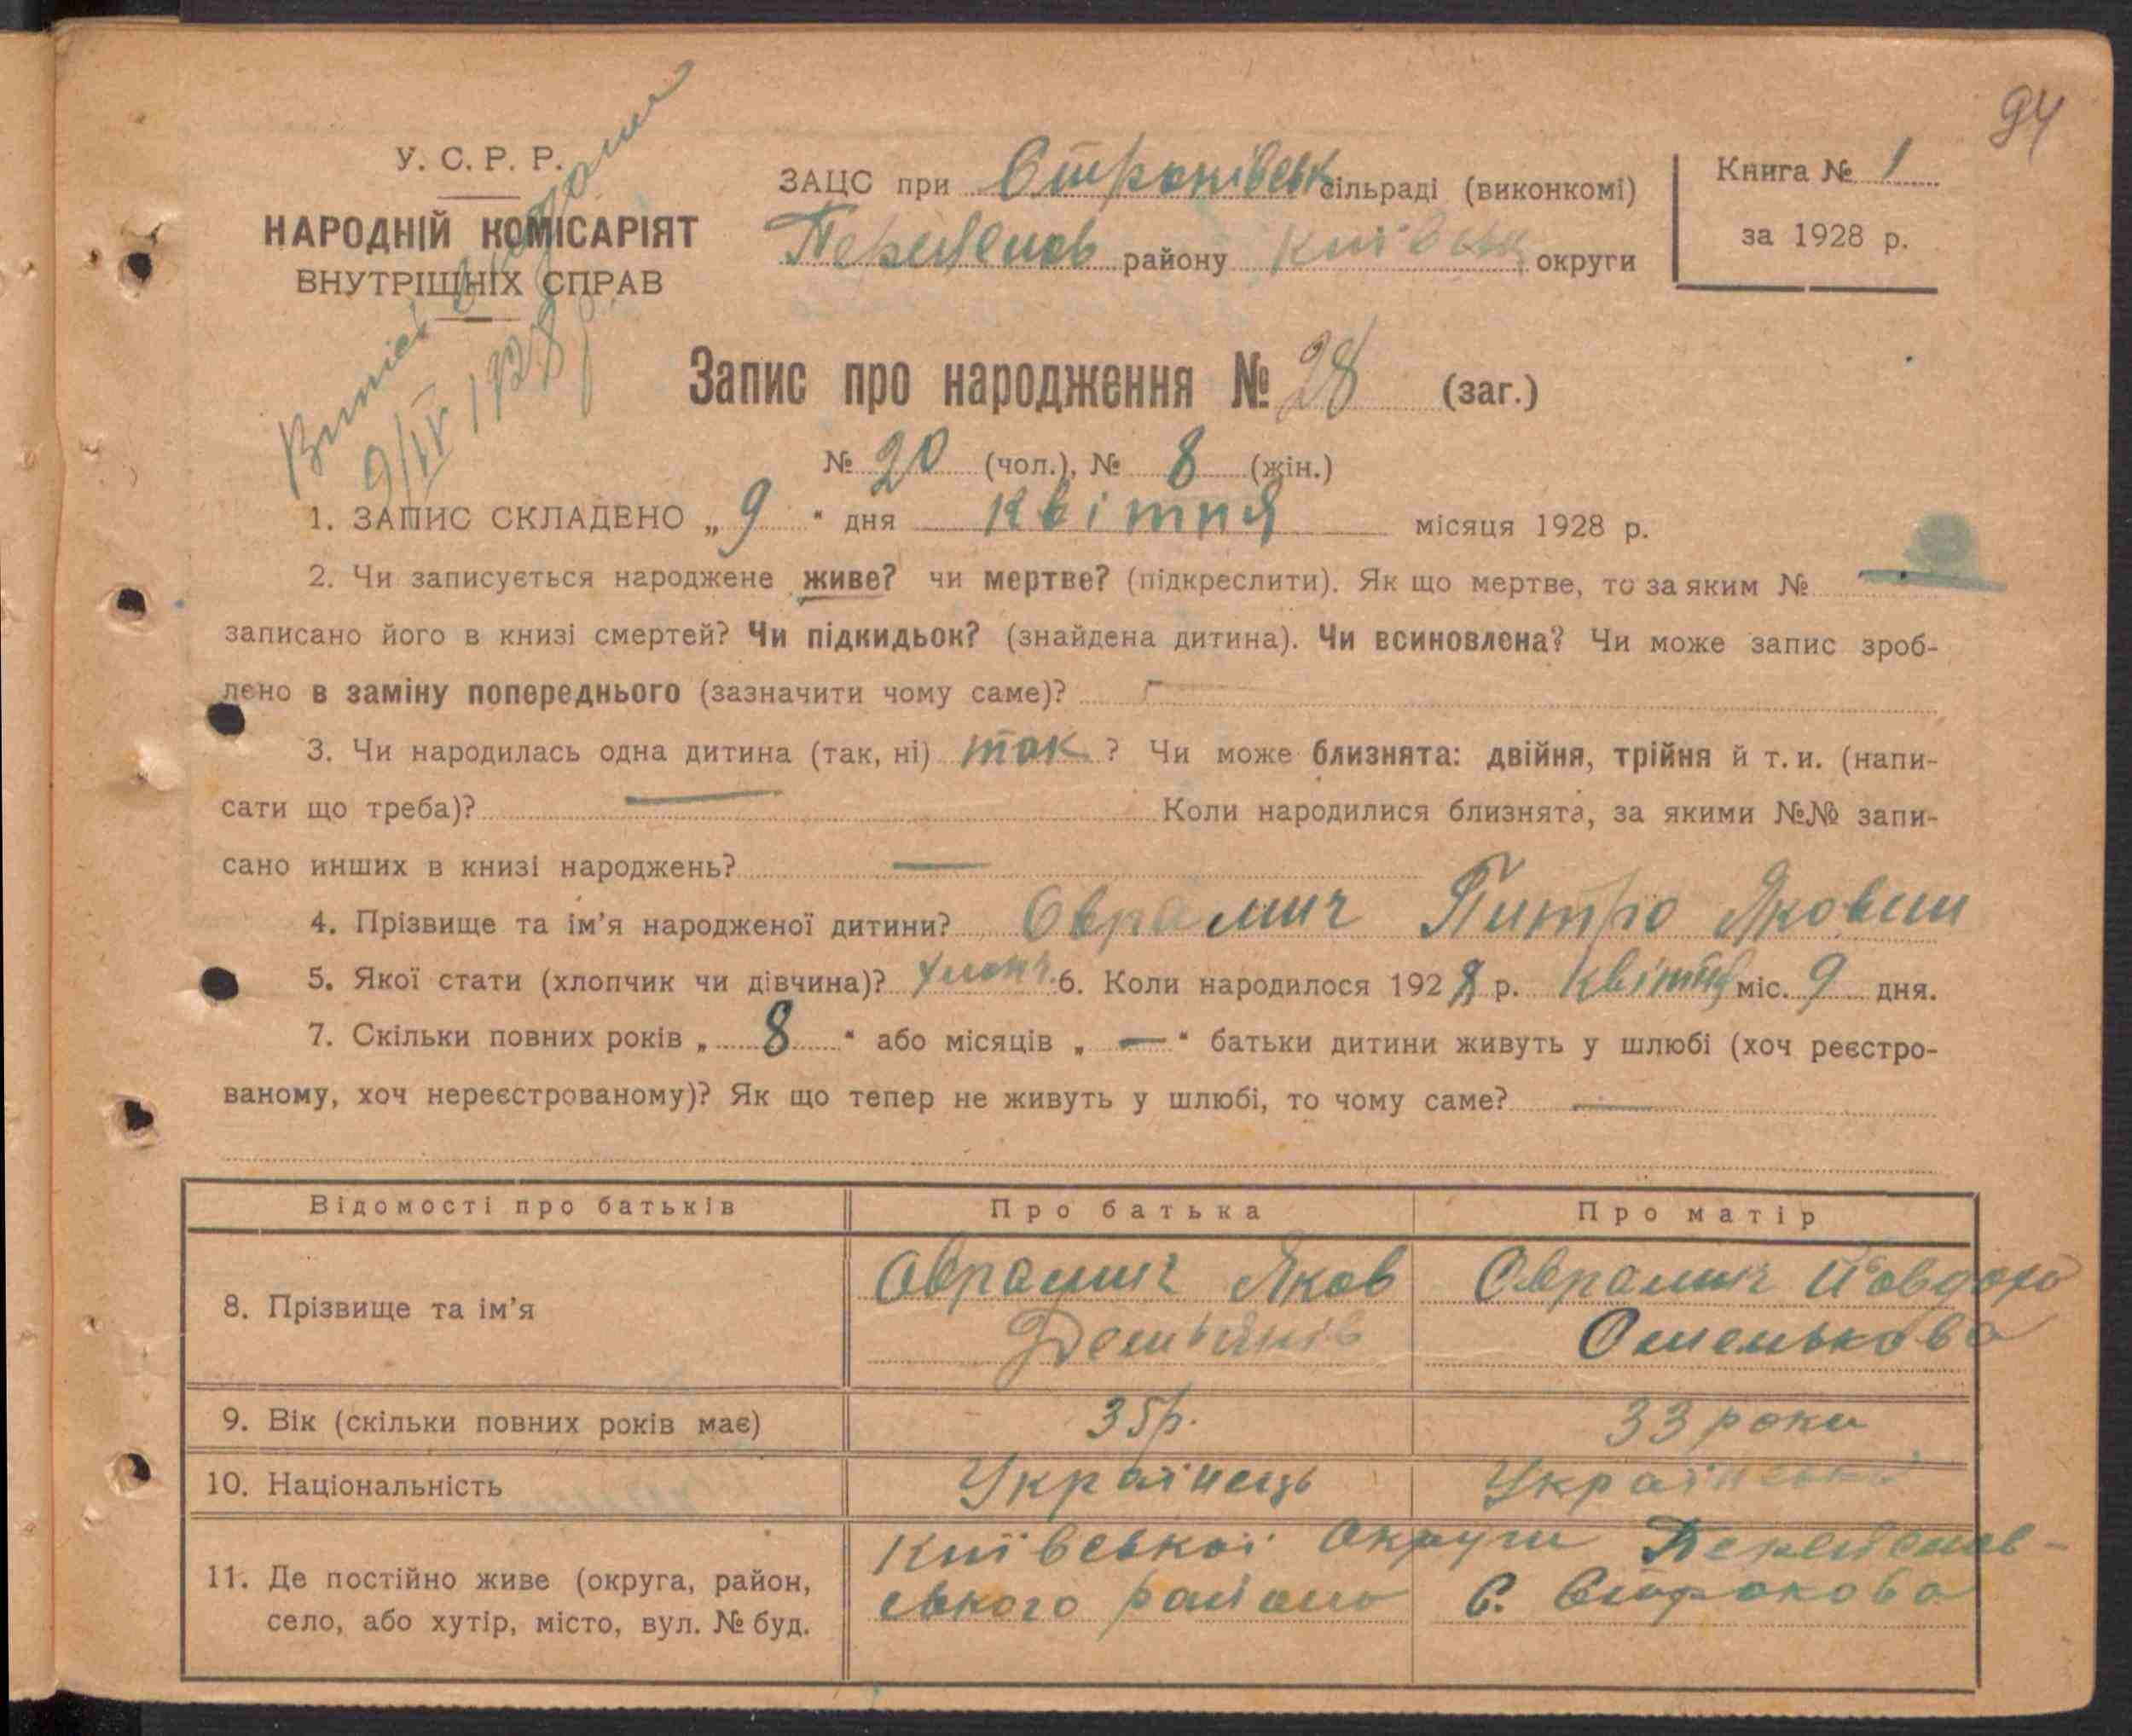 94
У. С. Р. Р.
НАРОДНІЙ КОМІСАРІЯТ
ВНУТРІШНІХ СПРАВ
Витяг видано
9/IV 1928 р.
ЗАЦС при Строківськ сільраді (виконкомі)
району Київськ округи
Книга № 1
за 1928 р.
Запис про народження № 28 (заг.)
№ 20 (чол.), № 8 (жін.)
1. ЗАПИС СКЛАДЕНО „ 9 " дня квітня місяця 1928 р.
2. Чи записується народжене живе? чи мертве? (підкреслити). Як що мертве, то за яким № —
записано його в книзі смертей? Чи підкидьок? (знайдена дитина). Чи всиновлена? Чи може запис зроб-
лено в заміну попереднього (зазначити чому саме)?
3. Чи народилась одна дитина (так, ні) так ? Чи може близнята: двійня, трійня й т. и. (напи-
сати що треба)? — Коли народилися близнята, за якими №№ запи-
сано инших в книзі народжень? —
4. Прізвище та ім'я народженої дитини? Оврамич Питро Якович
5. Якої стати (хлопчик чи дівчина)? хлопч. 6. Коли народилося 1928 р. квітня міс. 9 дня.
7. Скільки повних років „ 8 " або місяців „ — " батьки дитини живуть у шлюбі (хоч реєстро-
ваному, хоч нереєстрованому)? Як що тепер не живуть у шлюбі, то чому саме? —
Відомості про батьків Про батька Про матір
8. Прізвище та ім'я Оврамич Яков Оврамич Йовдоха
Демьянів
9. Вік (скільки повних років має) 35 р. 33 роки
10. Національність Українець Українська
11. Де постійно живе (округа, район, Київської Округи
село, або хутір, місто, вул. № буд. ського району с. Строкова